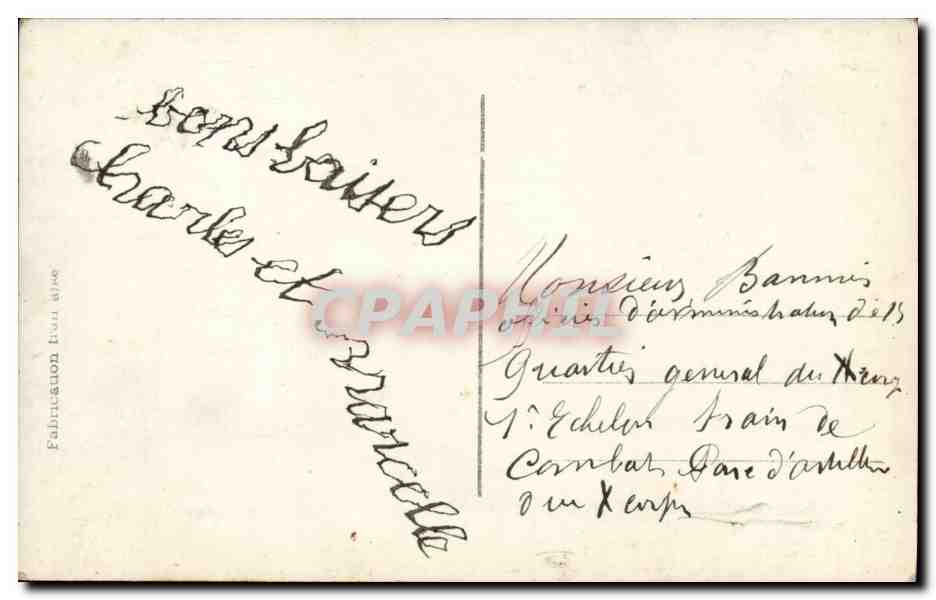 bons baisers
charles et marcelle
Fabrication
CPAPHIL
Monsieur
d'administration de
Quartier general du X corps
1e Echelon train de
Combat Parc d'artillerie
du X corps